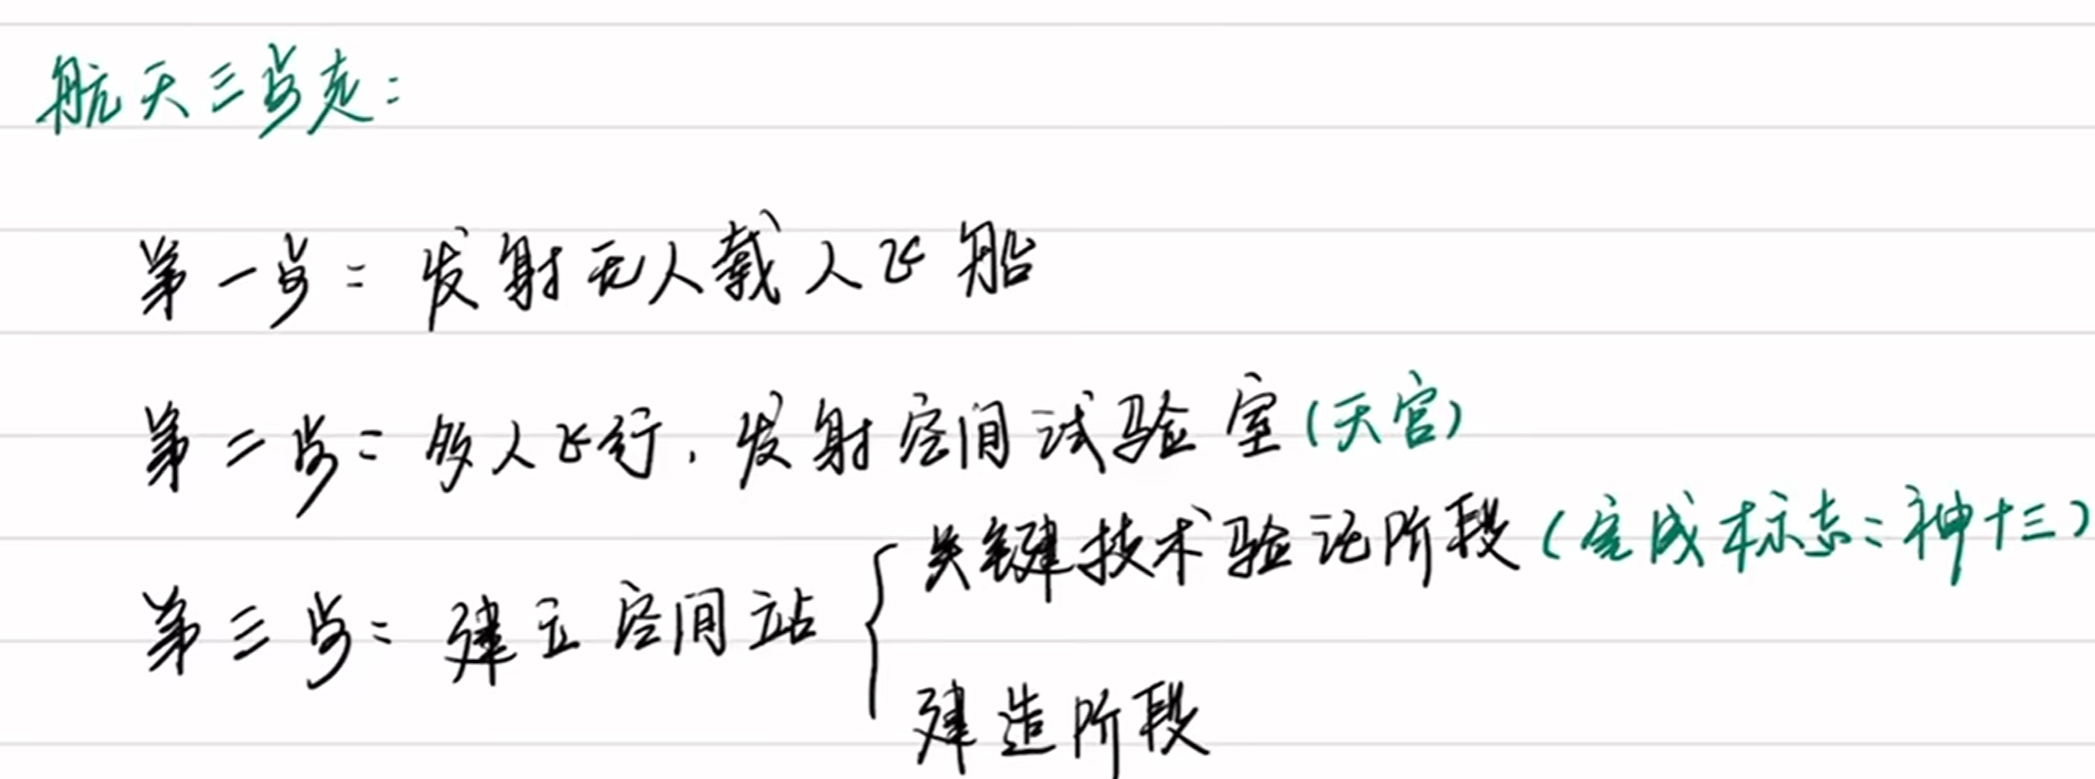 航天三步走：
第一步：发射无人载人飞船
第二步：多人飞行，发射空间试验室（天宫）
第三步：建立空间站
关键技术验证阶段（完成标志：神十三）
建造阶段